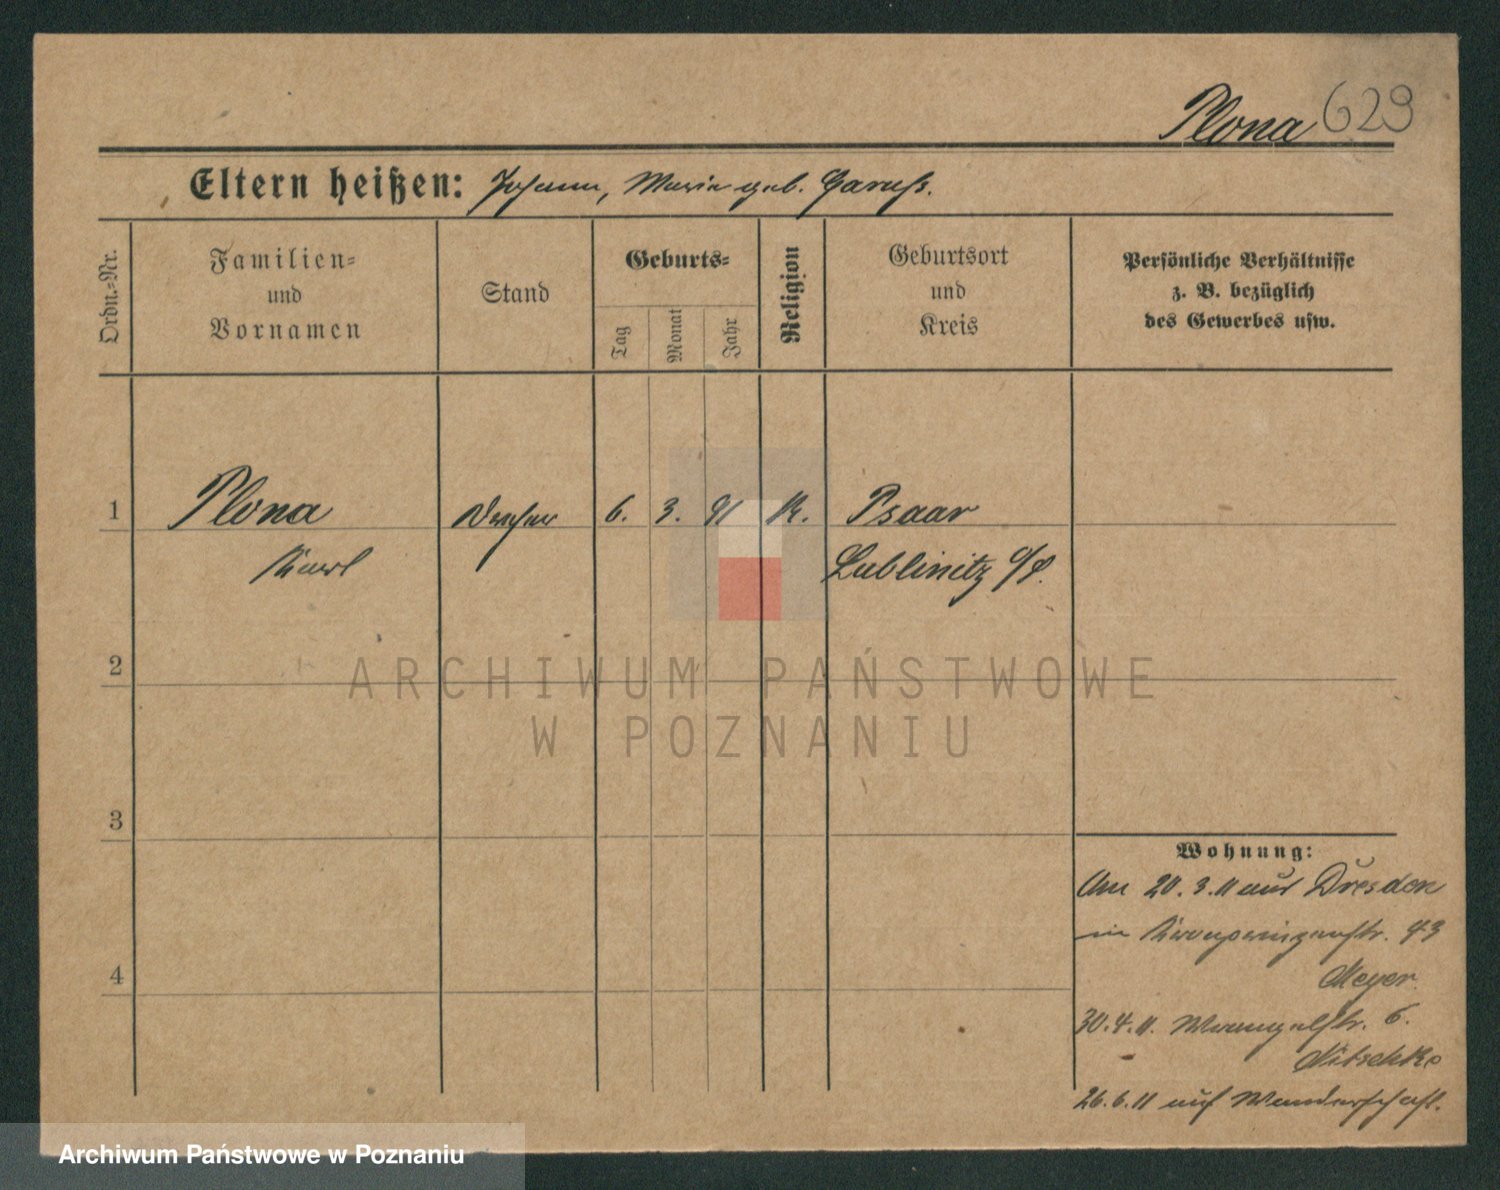 Plona 629
Eltern heißen: Johann, Marie geb.
Ordn.-Nr.
Familien-
und
Vornamen
Stand
Geburts-
Tag
Monat
Jahr
Religion
Geburtsort
und
Kreis
Persönliche Verhältnisse
z. B. bezüglich
des Gewerbes usw.
1 Plona 6. 3. 91 K. Psaar
Karl Lublinitz O/S.
2
ARCHIWUM PAŃSTWOWE
W POZNANIU
3
Wohnung:
Am 20.3.11 aus Dresden
in Kronprinzenstr. 93
Meyer.
4
30.4.11. Wrangelstr. 6.
Nitschke
26.6.11 auf Wanderschaft.
Archiwum Państwowe w Poznaniu